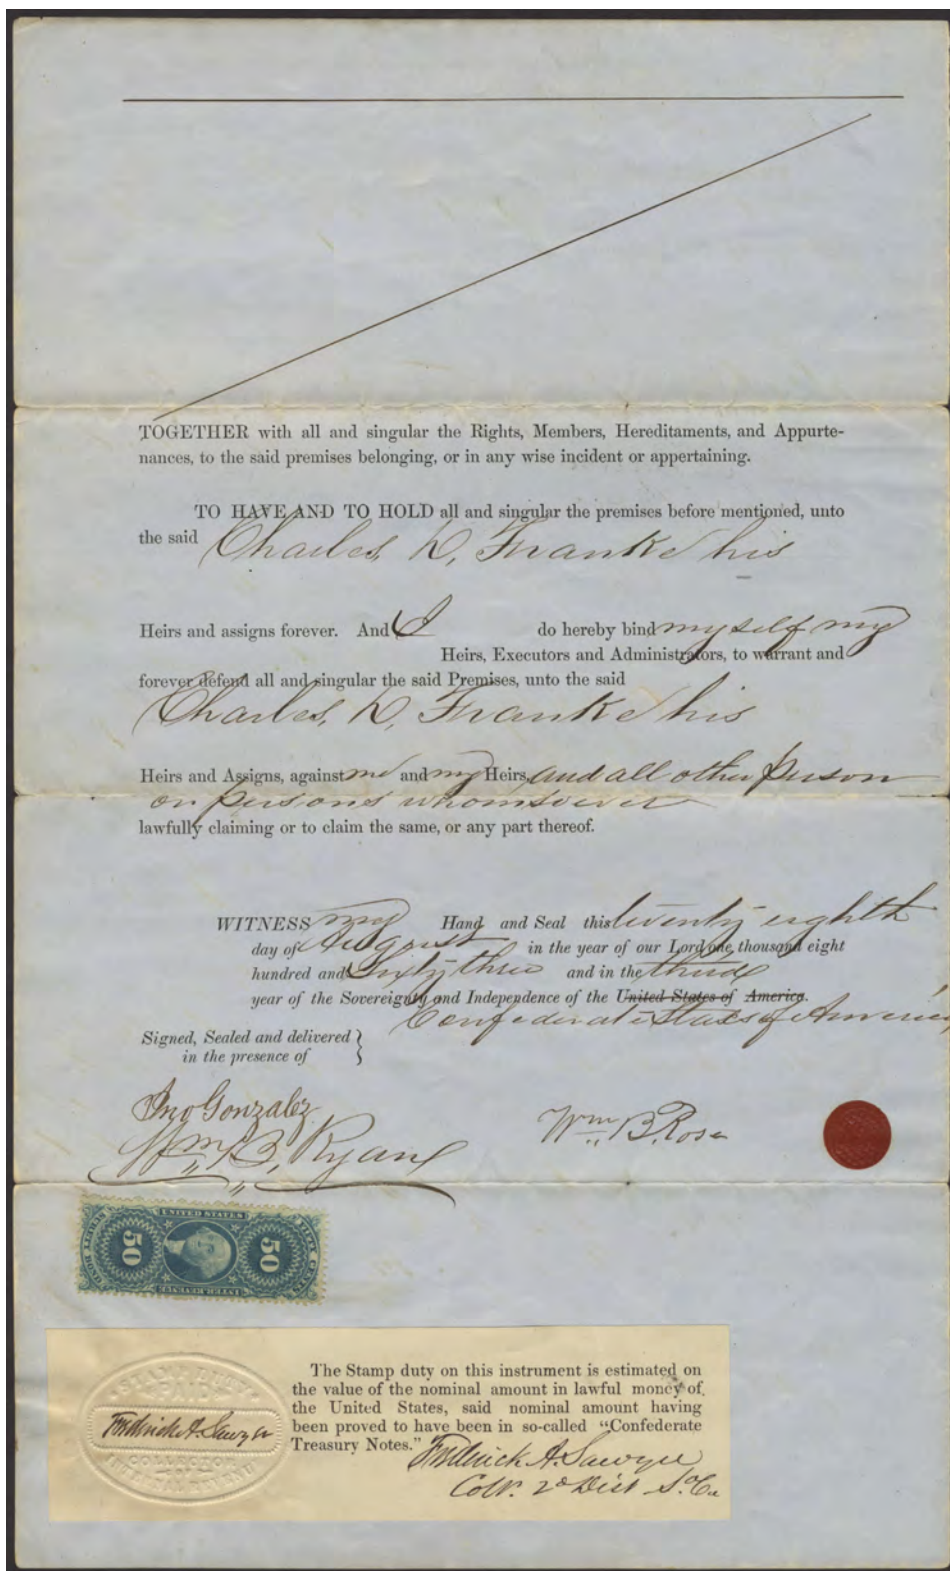 TOGETHER with all and singular the Rights, Members, Hereditaments, and Appurte-
nances, to the said premises belonging, or in any wise incident or appertaining.
TO HAVE AND TO HOLD all and singular the premises before mentioned, unto
the said Charles, D, Franke his
Heirs and assigns forever. And I do hereby bind myself my
Heirs, Executors and Administrators, to warrant and
forever defend all and singular the said Premises, unto the said
Charles, D, Franke his
Heirs and Assigns, against me and my Heirs, and all other person
or persons whomsoever
lawfully claiming or to claim the same, or any part thereof.
WITNESS my Hand and Seal this twenty eighth
day of August in the year of our Lord one thousand eight
hundred and Sixty three and in the third
year of the Sovereignty and Independence of the United States of America.
Confederate States of America
Signed, Sealed and delivered
in the presence of
Jno Gonzalez
Wm B. Rose
Wm B, Ryan
UNITED STATES
50
50
FIFTY CENTS
INTER. REVENUE
The Stamp duty on this instrument is estimated on
the value of the nominal amount in lawful money of
the United States, said nominal amount having
been proved to have been in so-called "Confederate
Treasury Notes."
STAMP DUTY
PAID
Frederick A. Sawyer
COLLECTOR
OF
INTERNAL REVENUE
Frederick A. Sawyer
Collr. 2d Dist So. Ca